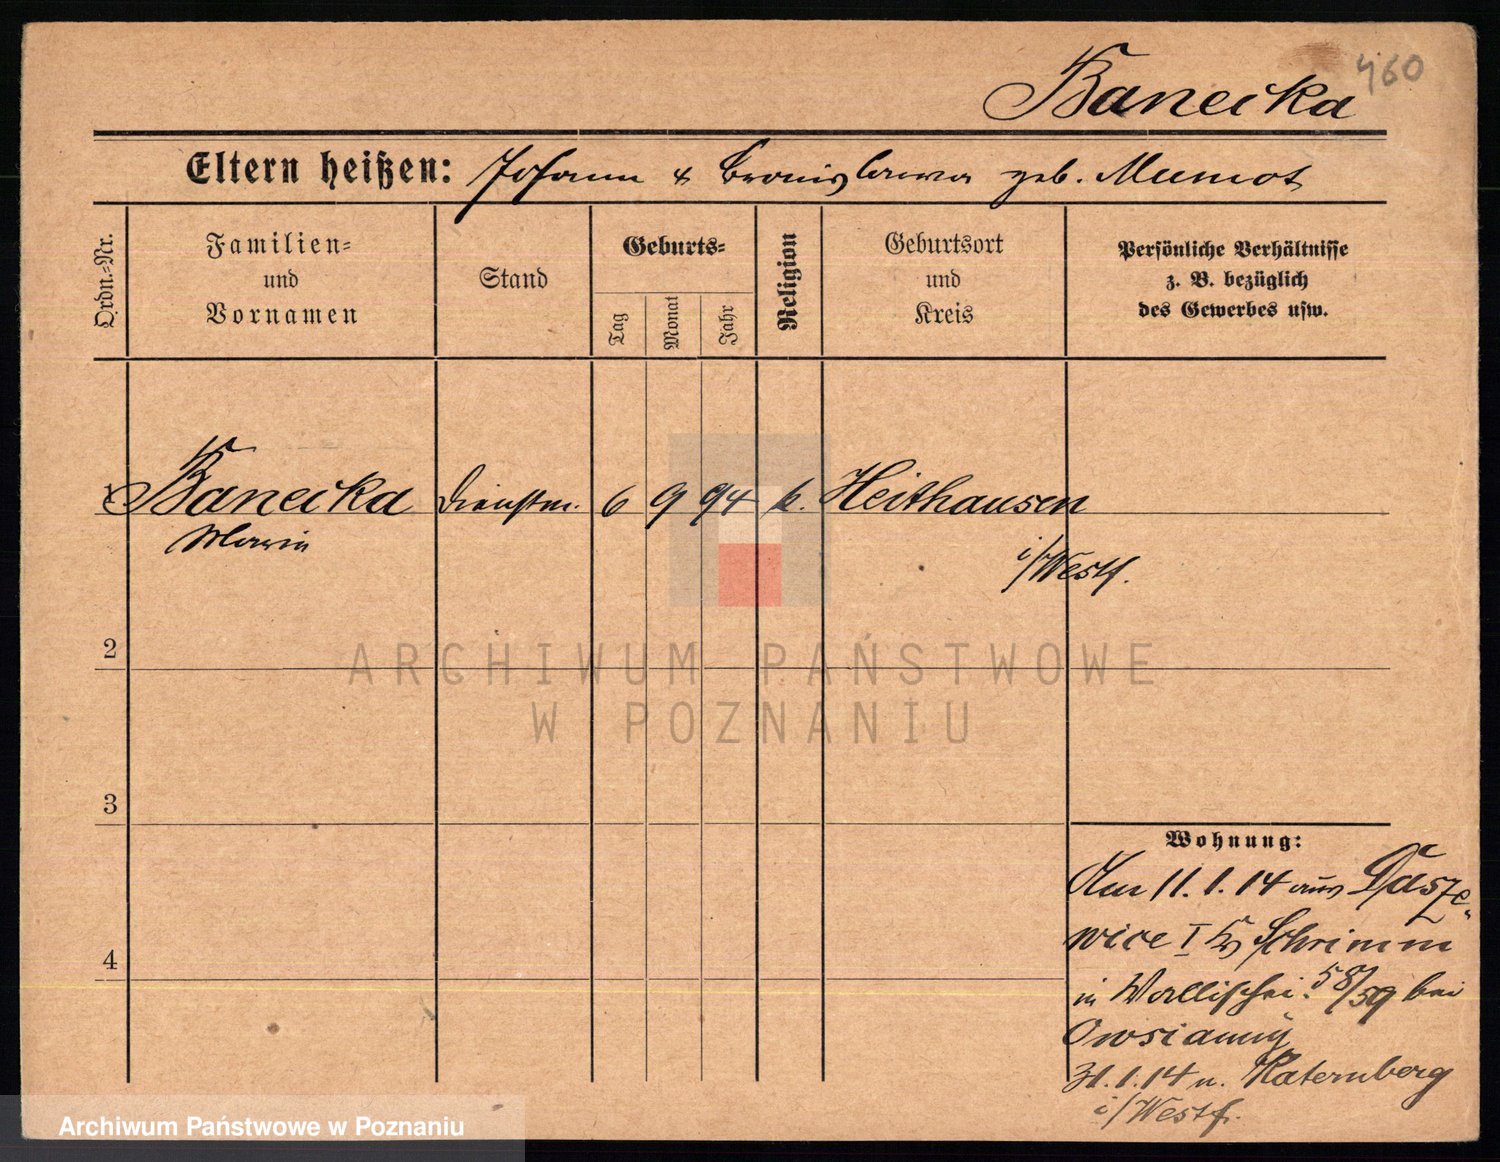 460
Banecka
Eltern heißen: Johann & Bronislawa geb. Mumot
Ordn.-Nr.
Familien- und Vornamen
Stand
Geburts-
Tag
Monat
Jahr
Religion
Geburtsort und Kreis
Persönliche Verhältnisse
z. B. bezüglich
des Gewerbes usw.
1 Banecka Dienstm. 6 9 94 k. Heithausen
Marie
i/Westf.
ARCHIWUM PAŃSTWOWE
W POZNANIU
2
3
4
Wohnung:
Am 11.1.14 aus
wice I Kr Schrimm
in Wallischei. 58/59 bei
Owsianny
31.1.14 n. Katernberg
i/Westf.
Archiwum Państwowe w Poznaniu